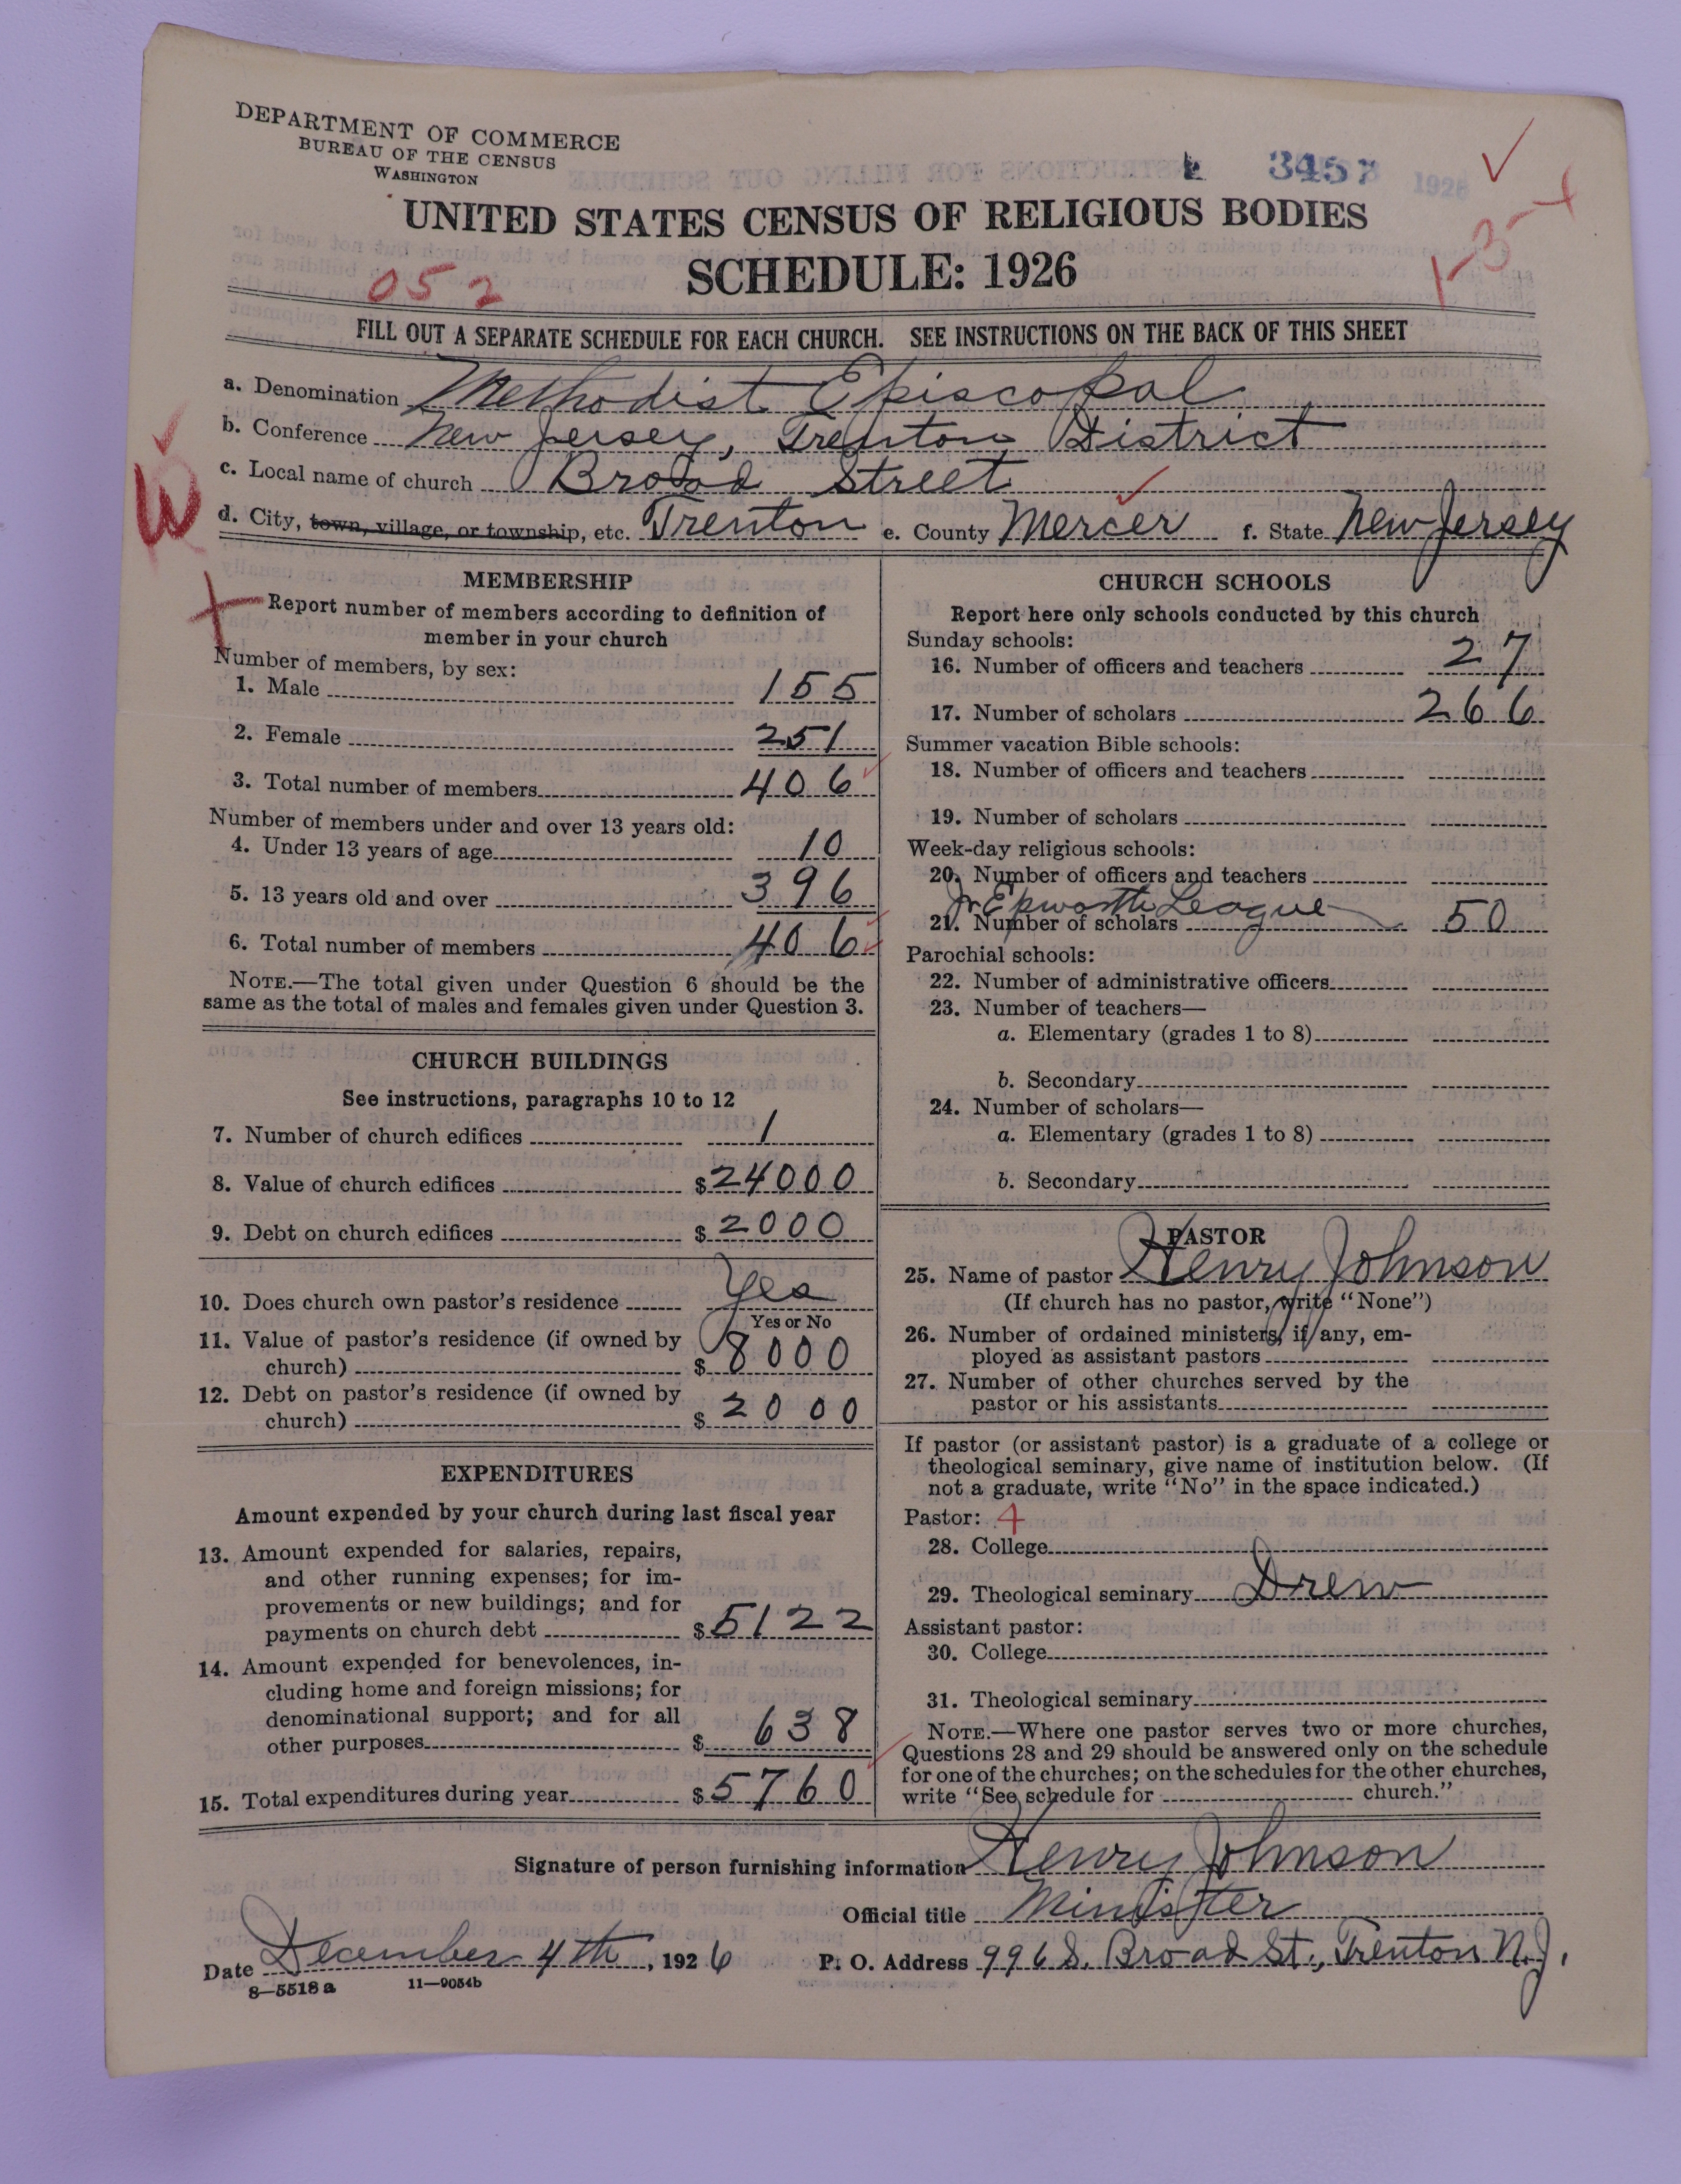 DEPARTMENT OF COMMERCE
BUREAU OF THE CENSUS
WASHINGTON
3457 1926
UNITED STATES CENSUS OF RELIGIOUS BODIES
SCHEDULE: 1926
052
1-3-+
FILL OUT A SEPARATE SCHEDULE FOR EACH CHURCH. SEE INSTRUCTIONS ON THE BACK OF THIS SHEET
a. Denomination Methodist Episcopal
b. Conference New Jersey, Trenton District
c. Local name of church Broad Street
d. City, town, village, or township, etc. Trenton e. County Mercer f. State New Jersey
W
MEMBERSHIP
Report number of members according to definition of
member in your church
Number of members, by sex:
1. Male 155
2. Female 251
3. Total number of members 406
Number of members under and over 13 years old:
4. Under 13 years of age 10
5. 13 years old and over 396
6. Total number of members 406
NOTE.—The total given under Question 6 should be the
same as the total of males and females given under Question 3.
CHURCH BUILDINGS
See instructions, paragraphs 10 to 12
7. Number of church edifices 1
8. Value of church edifices $24000
9. Debt on church edifices $2000
10. Does church own pastor's residence Yes
Yes or No
11. Value of pastor's residence (if owned by
church) $8000
12. Debt on pastor's residence (if owned by
church) $2000
EXPENDITURES
Amount expended by your church during last fiscal year
13. Amount expended for salaries, repairs,
and other running expenses; for im-
provements or new buildings; and for
payments on church debt $5122
14. Amount expended for benevolences, in-
cluding home and foreign missions; for
denominational support; and for all
other purposes $638
15. Total expenditures during year $5760
CHURCH SCHOOLS
Report here only schools conducted by this church
Sunday schools:
16. Number of officers and teachers 27
17. Number of scholars 266
Summer vacation Bible schools:
18. Number of officers and teachers
19. Number of scholars
Week-day religious schools:
20. Number of officers and teachers
Jr Epworth League
21. Number of scholars 50
Parochial schools:
22. Number of administrative officers
23. Number of teachers—
a. Elementary (grades 1 to 8)
b. Secondary
24. Number of scholars—
a. Elementary (grades 1 to 8)
b. Secondary
PASTOR
25. Name of pastor Henry Johnson
(If church has no pastor, write "None")
26. Number of ordained ministers, if any, em-
ployed as assistant pastors
27. Number of other churches served by the
pastor or his assistants
If pastor (or assistant pastor) is a graduate of a college or
theological seminary, give name of institution below. (If
not a graduate, write "No" in the space indicated.)
Pastor: 4
28. College
29. Theological seminary Drew
Assistant pastor:
30. College
31. Theological seminary
NOTE.—Where one pastor serves two or more churches,
Questions 28 and 29 should be answered only on the schedule
for one of the churches; on the schedules for the other churches,
write "See schedule for church."
Signature of person furnishing information Henry Johnson
Official title Minister
Date December 4th, 1926 P. O. Address 996 S. Broad St., Trenton N.J.
8—5518a 11—9054b